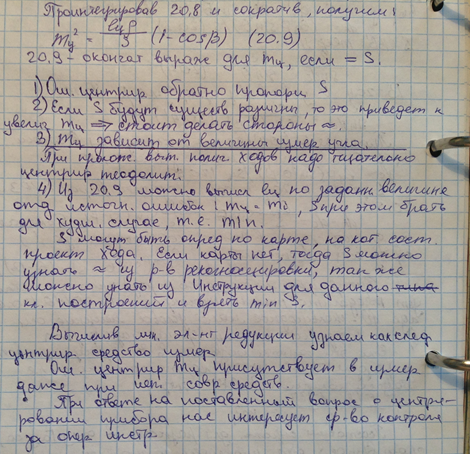 Проинтегрировав 20.8 и сократив, получим:
m²ц = eцρ/S (1-cosβ) (20.9)
20.9 - окончат выраже для mц, если = S.
1) Ош. центрир обратно пропорц S
2) Если S будут существ различн, то это приведет к
увелич mц ⟹ стоит делать стороны ≈.
3) mц зависит от величины измер угла.
При вып полиг ходов надо тщательно
центрир теодолит.
4) Из 20.9 можно вычисл eц по заданн величине
отд источн. ошибок: mц = mi, S при этом брать
для худш. случае, т.е. min.
S могут быть опред по карте, на кот. сост.
проект хода. Если карты нет, тогда S можно
узнать ≈ из р-в рекогносцировки, так же
можно узнать из Инструкции для данного
кл. построений и взять min S.
эл-нт редукции узнаем как след
центрир. средство измер
Ош. центрир mц присутствует в измер
даже при исп. совр средств.
При ответе на поставленный вопрос о центри-
ровании прибора нас интересует ср-во контроля
за опер инстр.